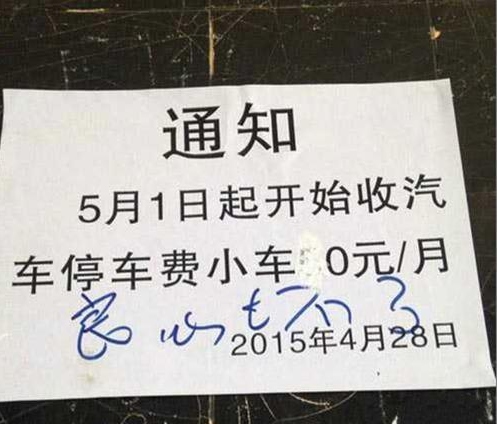 通知
5月1日起开始收汽
车停车费小车 0元/月
良心坏了
2015年4月28日